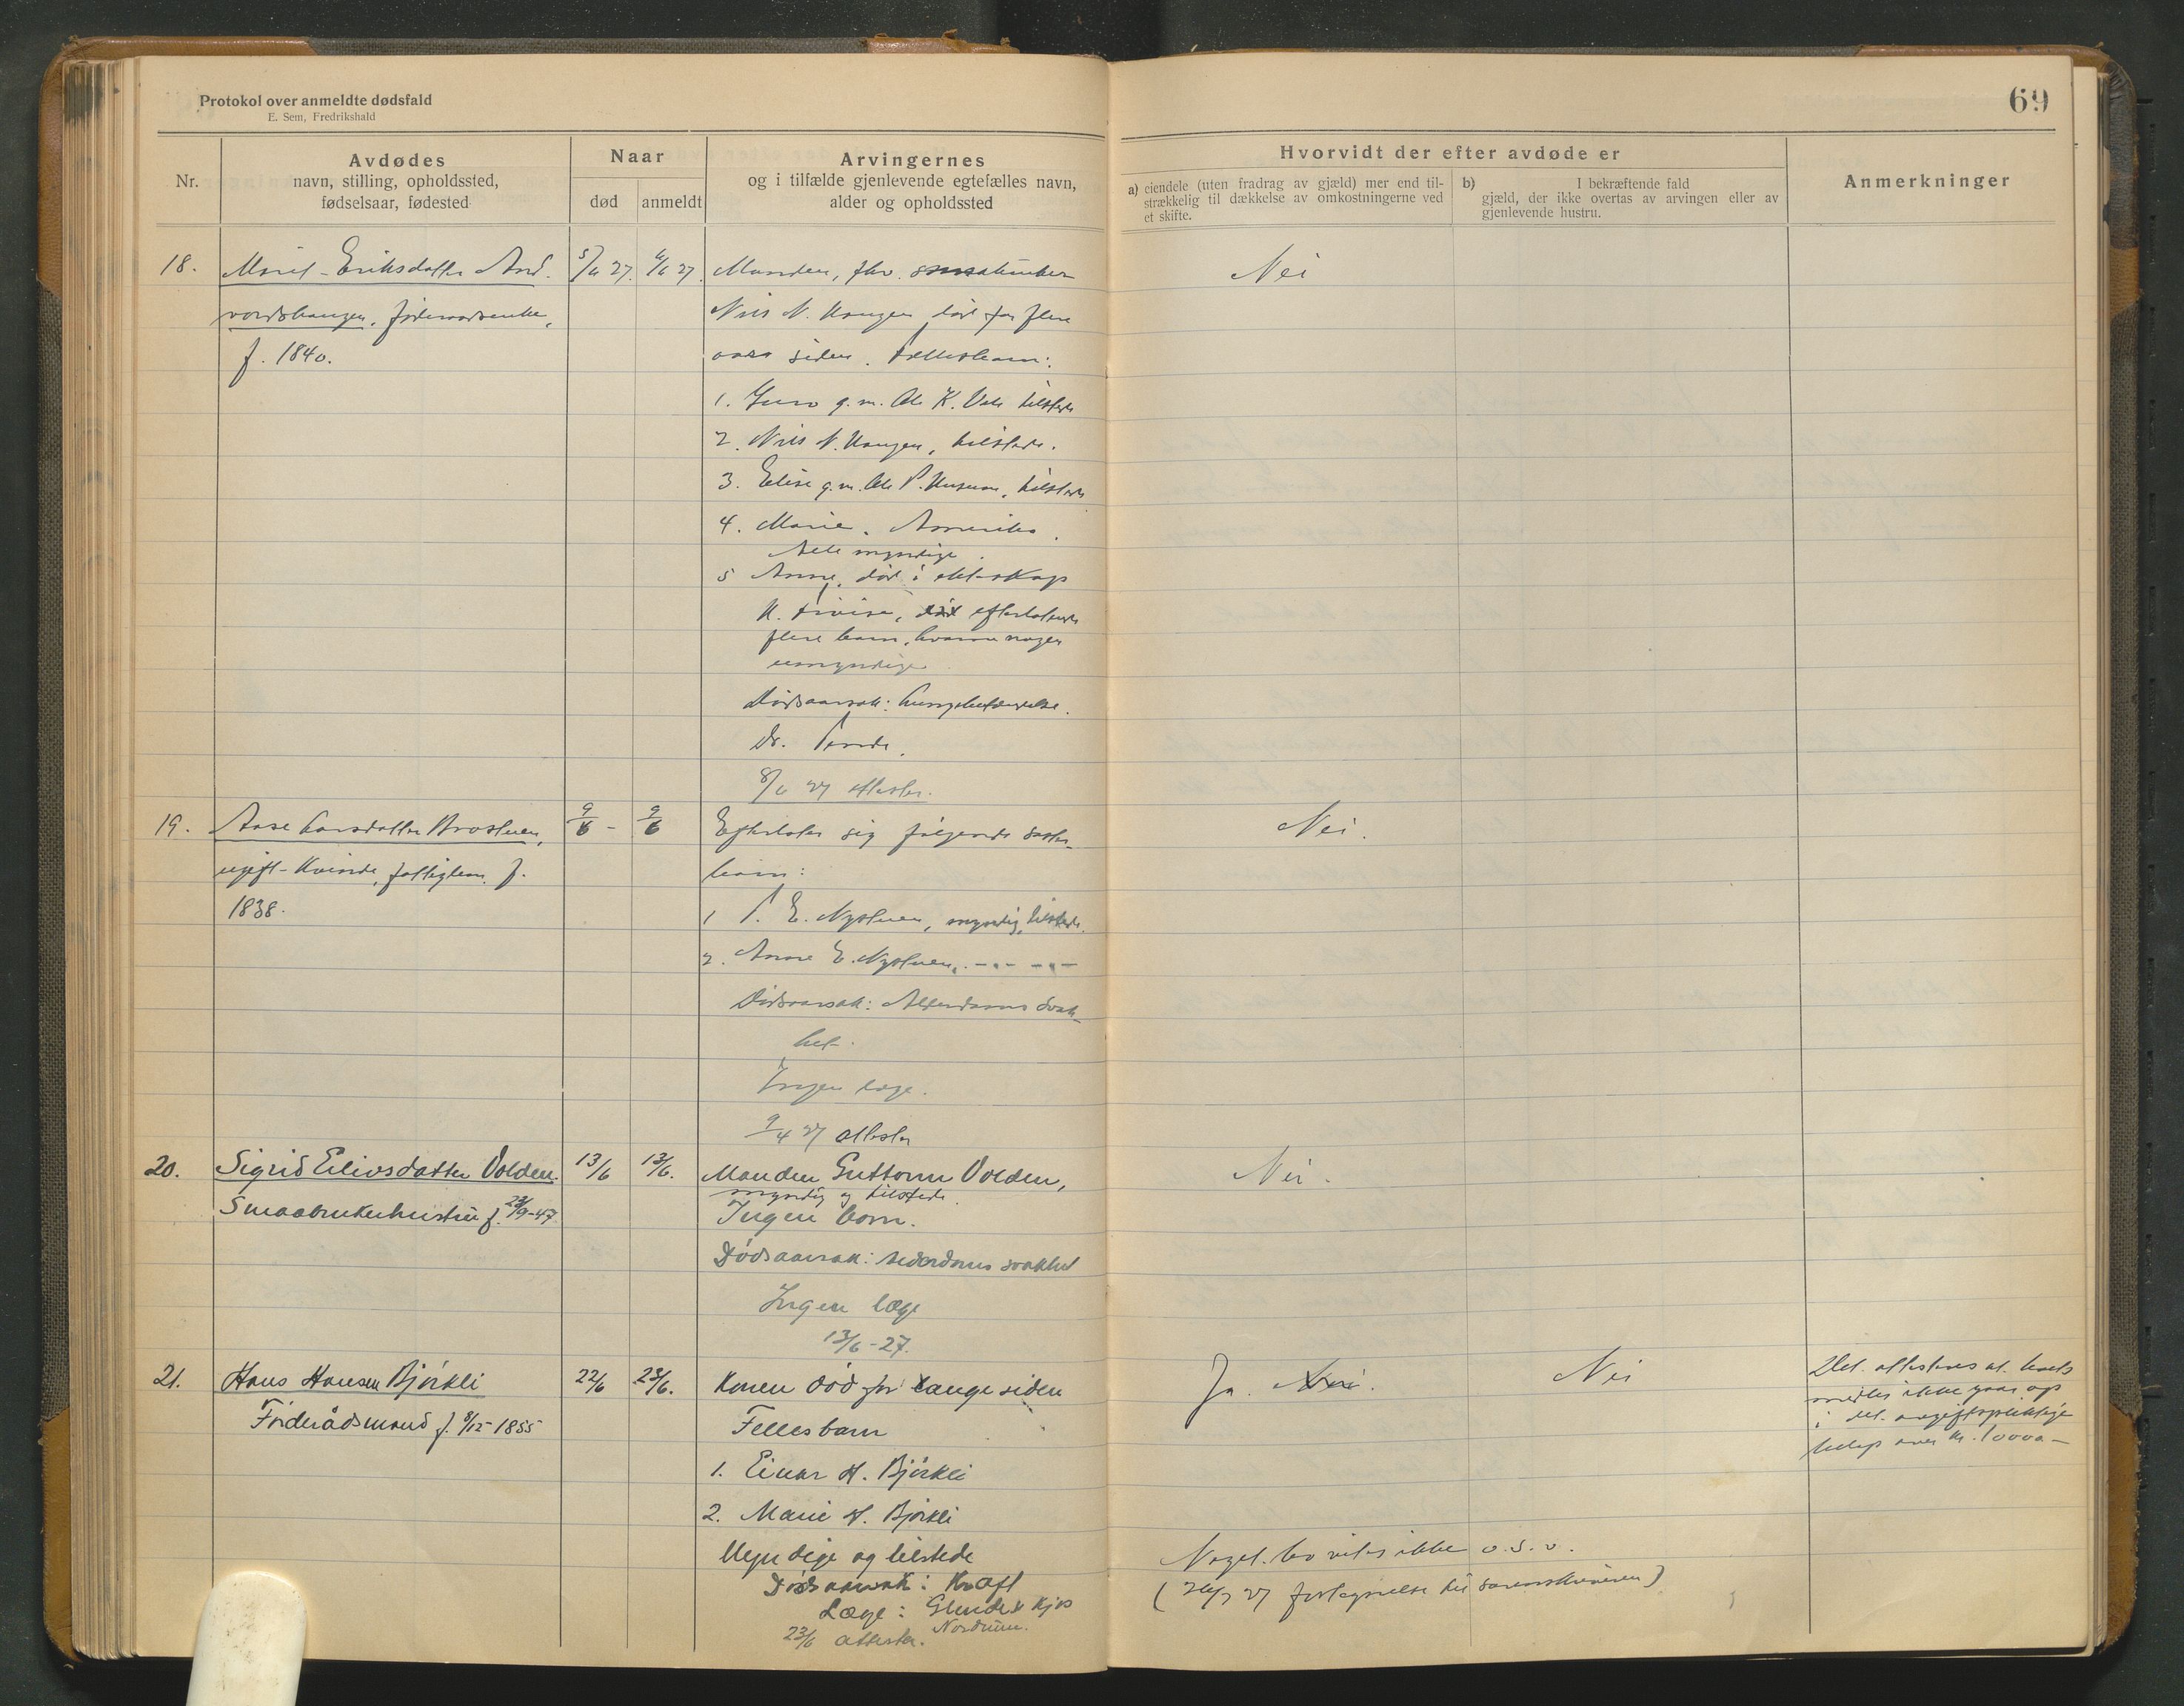 Protokol over anmeldte dødsfald
E. Sem, Fredrikshald
69
Nr.
Avdødes
navn, stilling, opholdssted,
fødselsaar, fødested
Naar
død
anmeldt
Arvingernes
og i tilfælde gjenlevende egtefælles navn,
alder og opholdssted
Hvorvidt der efter avdøde er
a) eiendele (uten fradrag av gjæld) mer end til-
strækkelig til dækkelse av omkostningerne ved
et skifte.
b) I bekræftende fald
gjæld, der ikke overtas av arvingen eller av
gjenlevende hustru.
Anmerkninger
18.
Marit Eriksdatter
føderaadsenke,
f. 1840.
5/6 27.
6/6 27
Manden, fhv.
Nils N. Haugen død for flere
aar siden. Fellesbarn:
1. Guro g.m. Ole K. tilstede
2. Nils N. Haugen, tilstede.
3. Elise g.m. Ole P. tilstede
4. Marie, Amerika.
Alle myndige.
5 Anne, død i
efterlatende
flere barn, hvorav nogen
umyndige
Dødsaarsak: Lungebetændelse.
Dr.
8/6 27 attester.
Nei
19.
Aase Larsdatter
ugift kvinde, fattiglem, f.
1838.
9/6 -
9/6
Efterlater sig følgende søster-
barn:
1 P. E. Nystuen, myndig, tilstede.
2. Anne E. Nystuen, -"- -"-
Dødsaarsak: Alderdoms svak-
het.
Ingen læge.
27 attester
Nei.
20.
Sigrid Eilivsdatter Volden.
Smaabrukerhustru f. 23/9-47
13/6
13/6.
Manden Guttorm Volden,
myndig og tilstede.
Ingen barn.
Dødsaarsak: Alderdoms svakhet
Ingen læge
13/6-27.
Nei.
21.
Hans Hansen Bjørkli
Føderådsmand f. 8/12-1855
22/6
23/6.
Konen død for lange siden
Fellesbarn
1. Einar H. Bjørkli
2. Marie H. Bjørkli
Myndige og tilstede
Dødsaarsak: Kræft
Læge:
23/6 attester.
Ja. Nei.
Nei
Det attesteres at boets
midler ikke gaar op
i det avgiftspliktige
beløp over kr. 10000-
Noget bo vites ikke o.s.v.
27 til sorenskriveren)